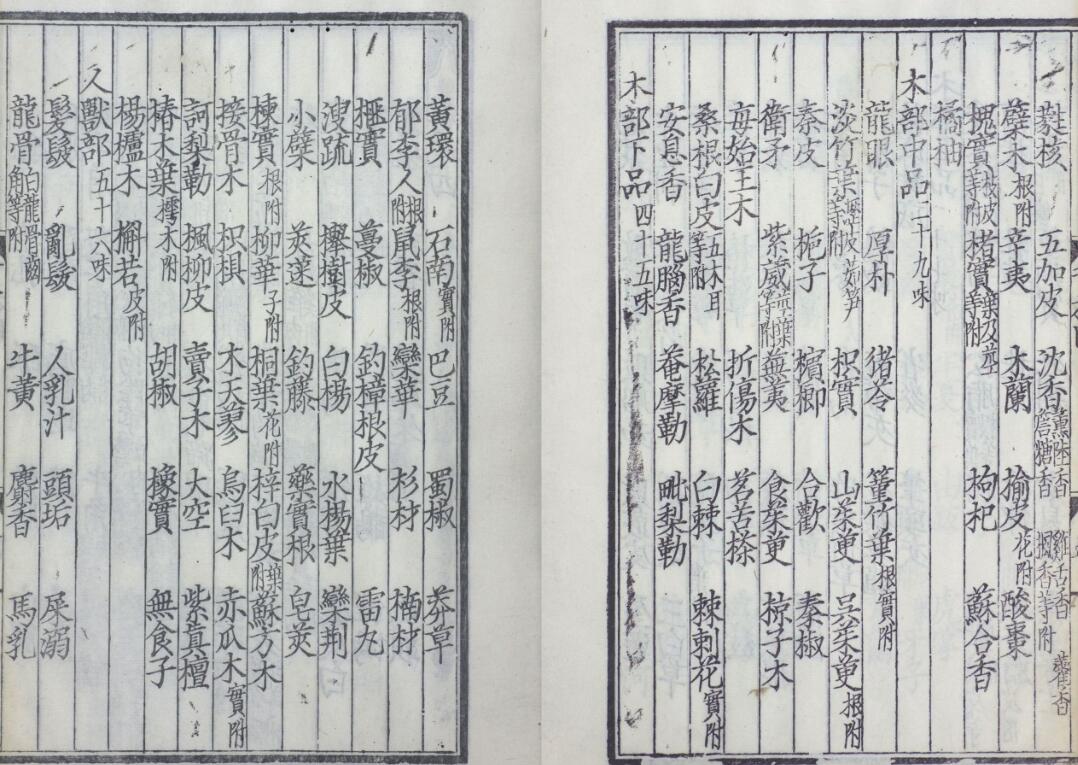 蕤核 五加皮 沈香薰陸香 雞舌香 藿香 詹糖香 楓香等附
蘗木根附 辛夷 木蘭 榆皮花附 酸棗
槐實枝皮等附 楮實葉及莖等附 枸杞 蘇合香
橘柚
木部中品二十九味
龍眼 厚朴 猪苓 篁竹葉根實附
淡竹葉瀝皮筎笋等附 枳實 山茱萸 吳茱萸根附
秦皮 梔子 檳榔 合歡 秦椒
衛矛 紫葳莖葉等附 蕪荑 食茱萸 椋子木
每始王木 折傷木 茗苦搽
桑根白皮五木耳等附 松蘿 白棘 棘刺花實附
安息香 龍腦香 菴摩勒 毗梨勒
木部下品四十五味
黃環 石南實附 巴豆 蜀椒 莽草
郁李人根附 鼠李根附 欒華 杉材 楠材
榧實 蔓椒 釣樟根皮 雷丸
溲疏 櫸樹皮 白楊 水楊葉 欒荆
小蘗 莢蒾 釣藤 藥實根 皂莢
楝實根附 柳華子附 桐葉花附 梓白皮葉附 蘇方木
接骨木 枳椇 木天蓼 烏臼木 赤瓜木實附
訶梨勒 楓柳皮 賣子木 大空 紫真檀
椿木葉樗木附 胡椒 橡實 無食子
楊櫨木 槲若皮附
人獸部五十六味
髮髲 亂髮 人乳汁 頭垢 屎溺
龍骨白龍骨齒角等附 牛黃 麝香 馬乳